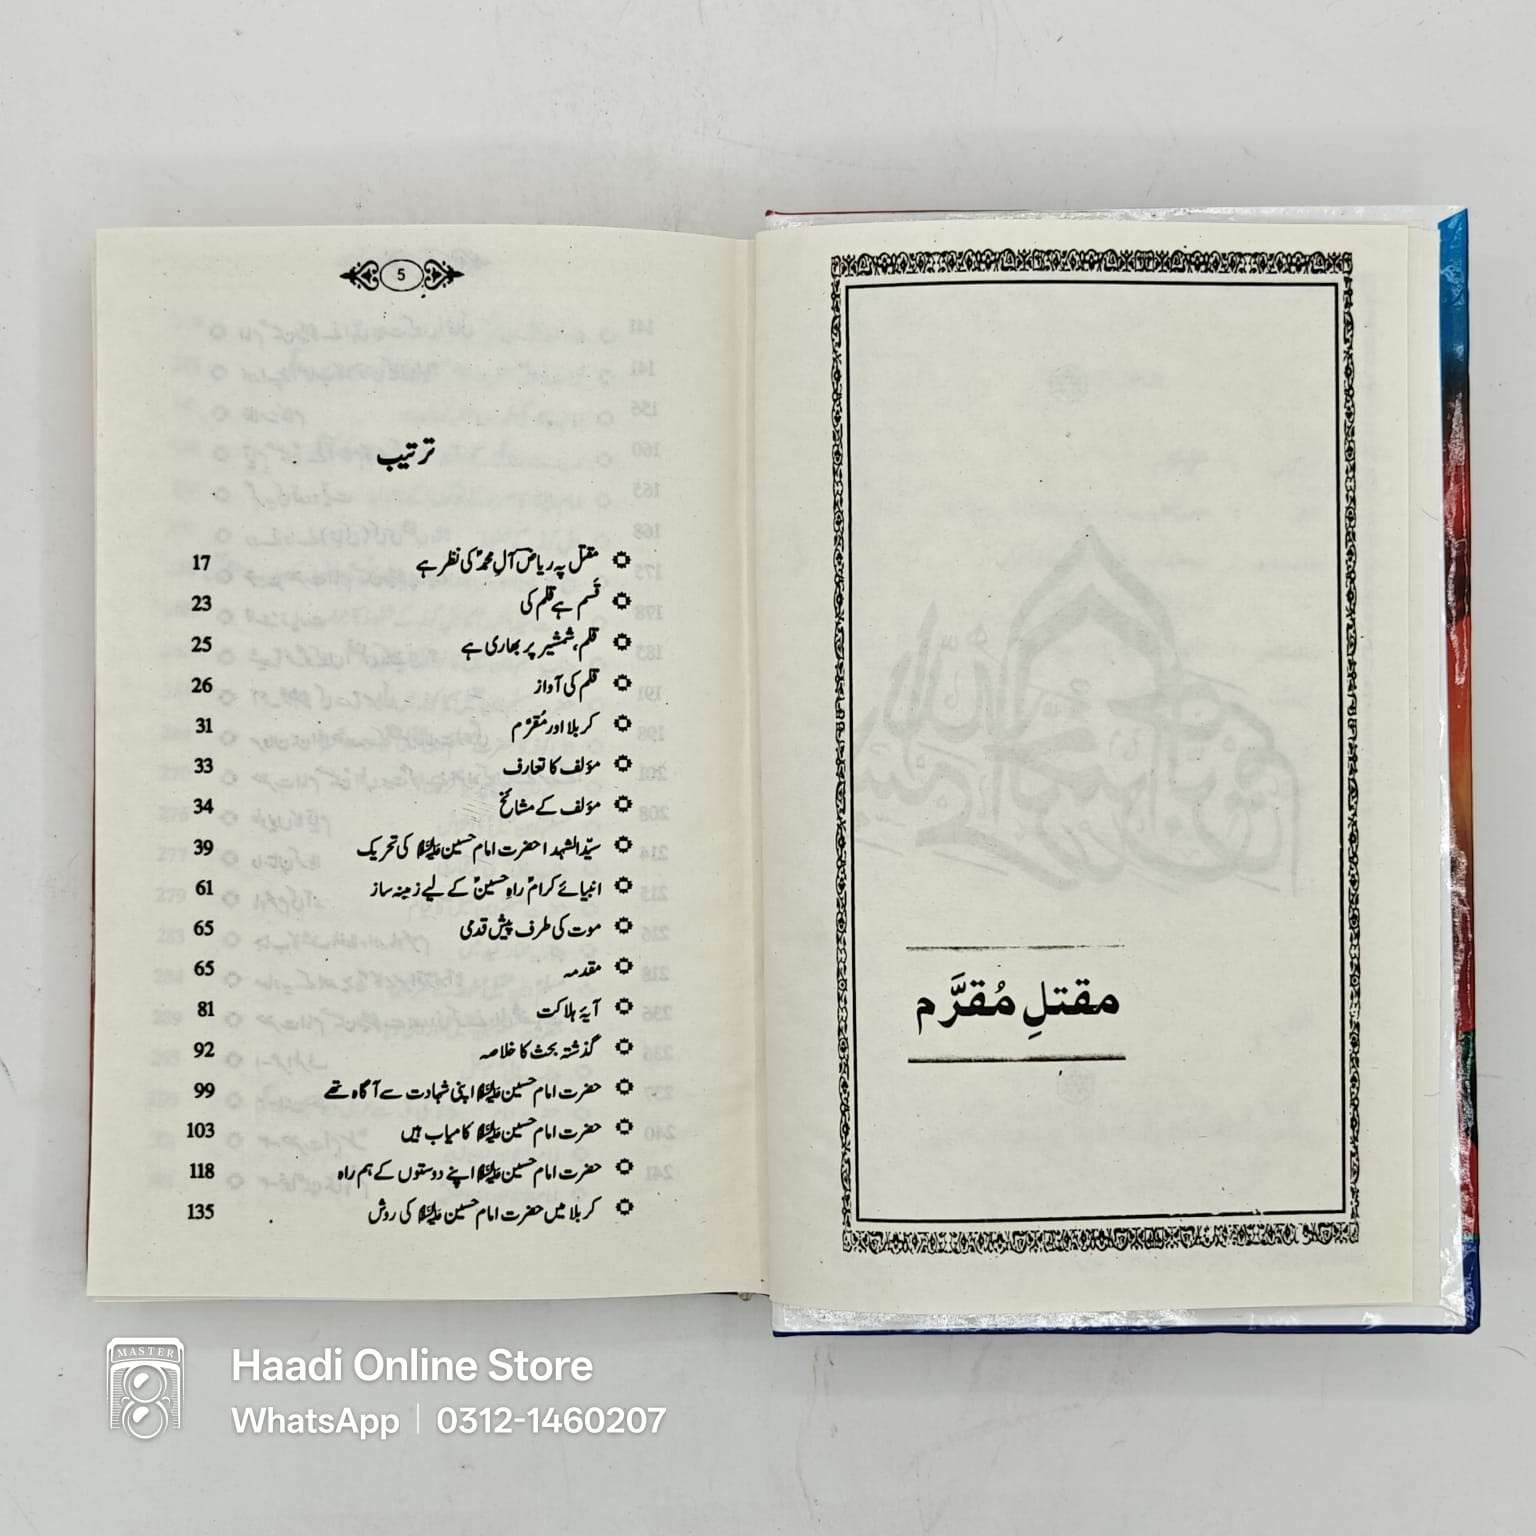 مقتلِ مُقرَّم
5
ترتیب
مقتل پہ ریاضِ آلِ محمدؐ کی نظر ہے 17
قَسم ہے قلم کی 23
قلم، شمشیر پر بھاری ہے 25
قلم کی آواز 26
کربلا اور مُقرّم 31
مؤلف کا تعارف 33
مؤلف کے مشائخ 34
سیّد الشہدا حضرت امام حسین علیہ السلام کی تحریک 39
انبیائے کرامؑ راہِ حسینؑ کے لیے زمینہ ساز 61
موت کی طرف پیش قدمی 65
مقدمہ 65
آیۂ ہلاکت 81
گذشتہ بحث کا خلاصہ 92
حضرت امام حسین علیہ السلام اپنی شہادت سے آگاہ تھے 99
حضرت امام حسین علیہ السلام کامیاب ہیں 103
حضرت امام حسین علیہ السلام اپنے دوستوں کے ہم راہ 118
کربلا میں حضرت امام حسین علیہ السلام کی روش 135
MASTER
Haadi Online Store
WhatsApp | 0312-1460207